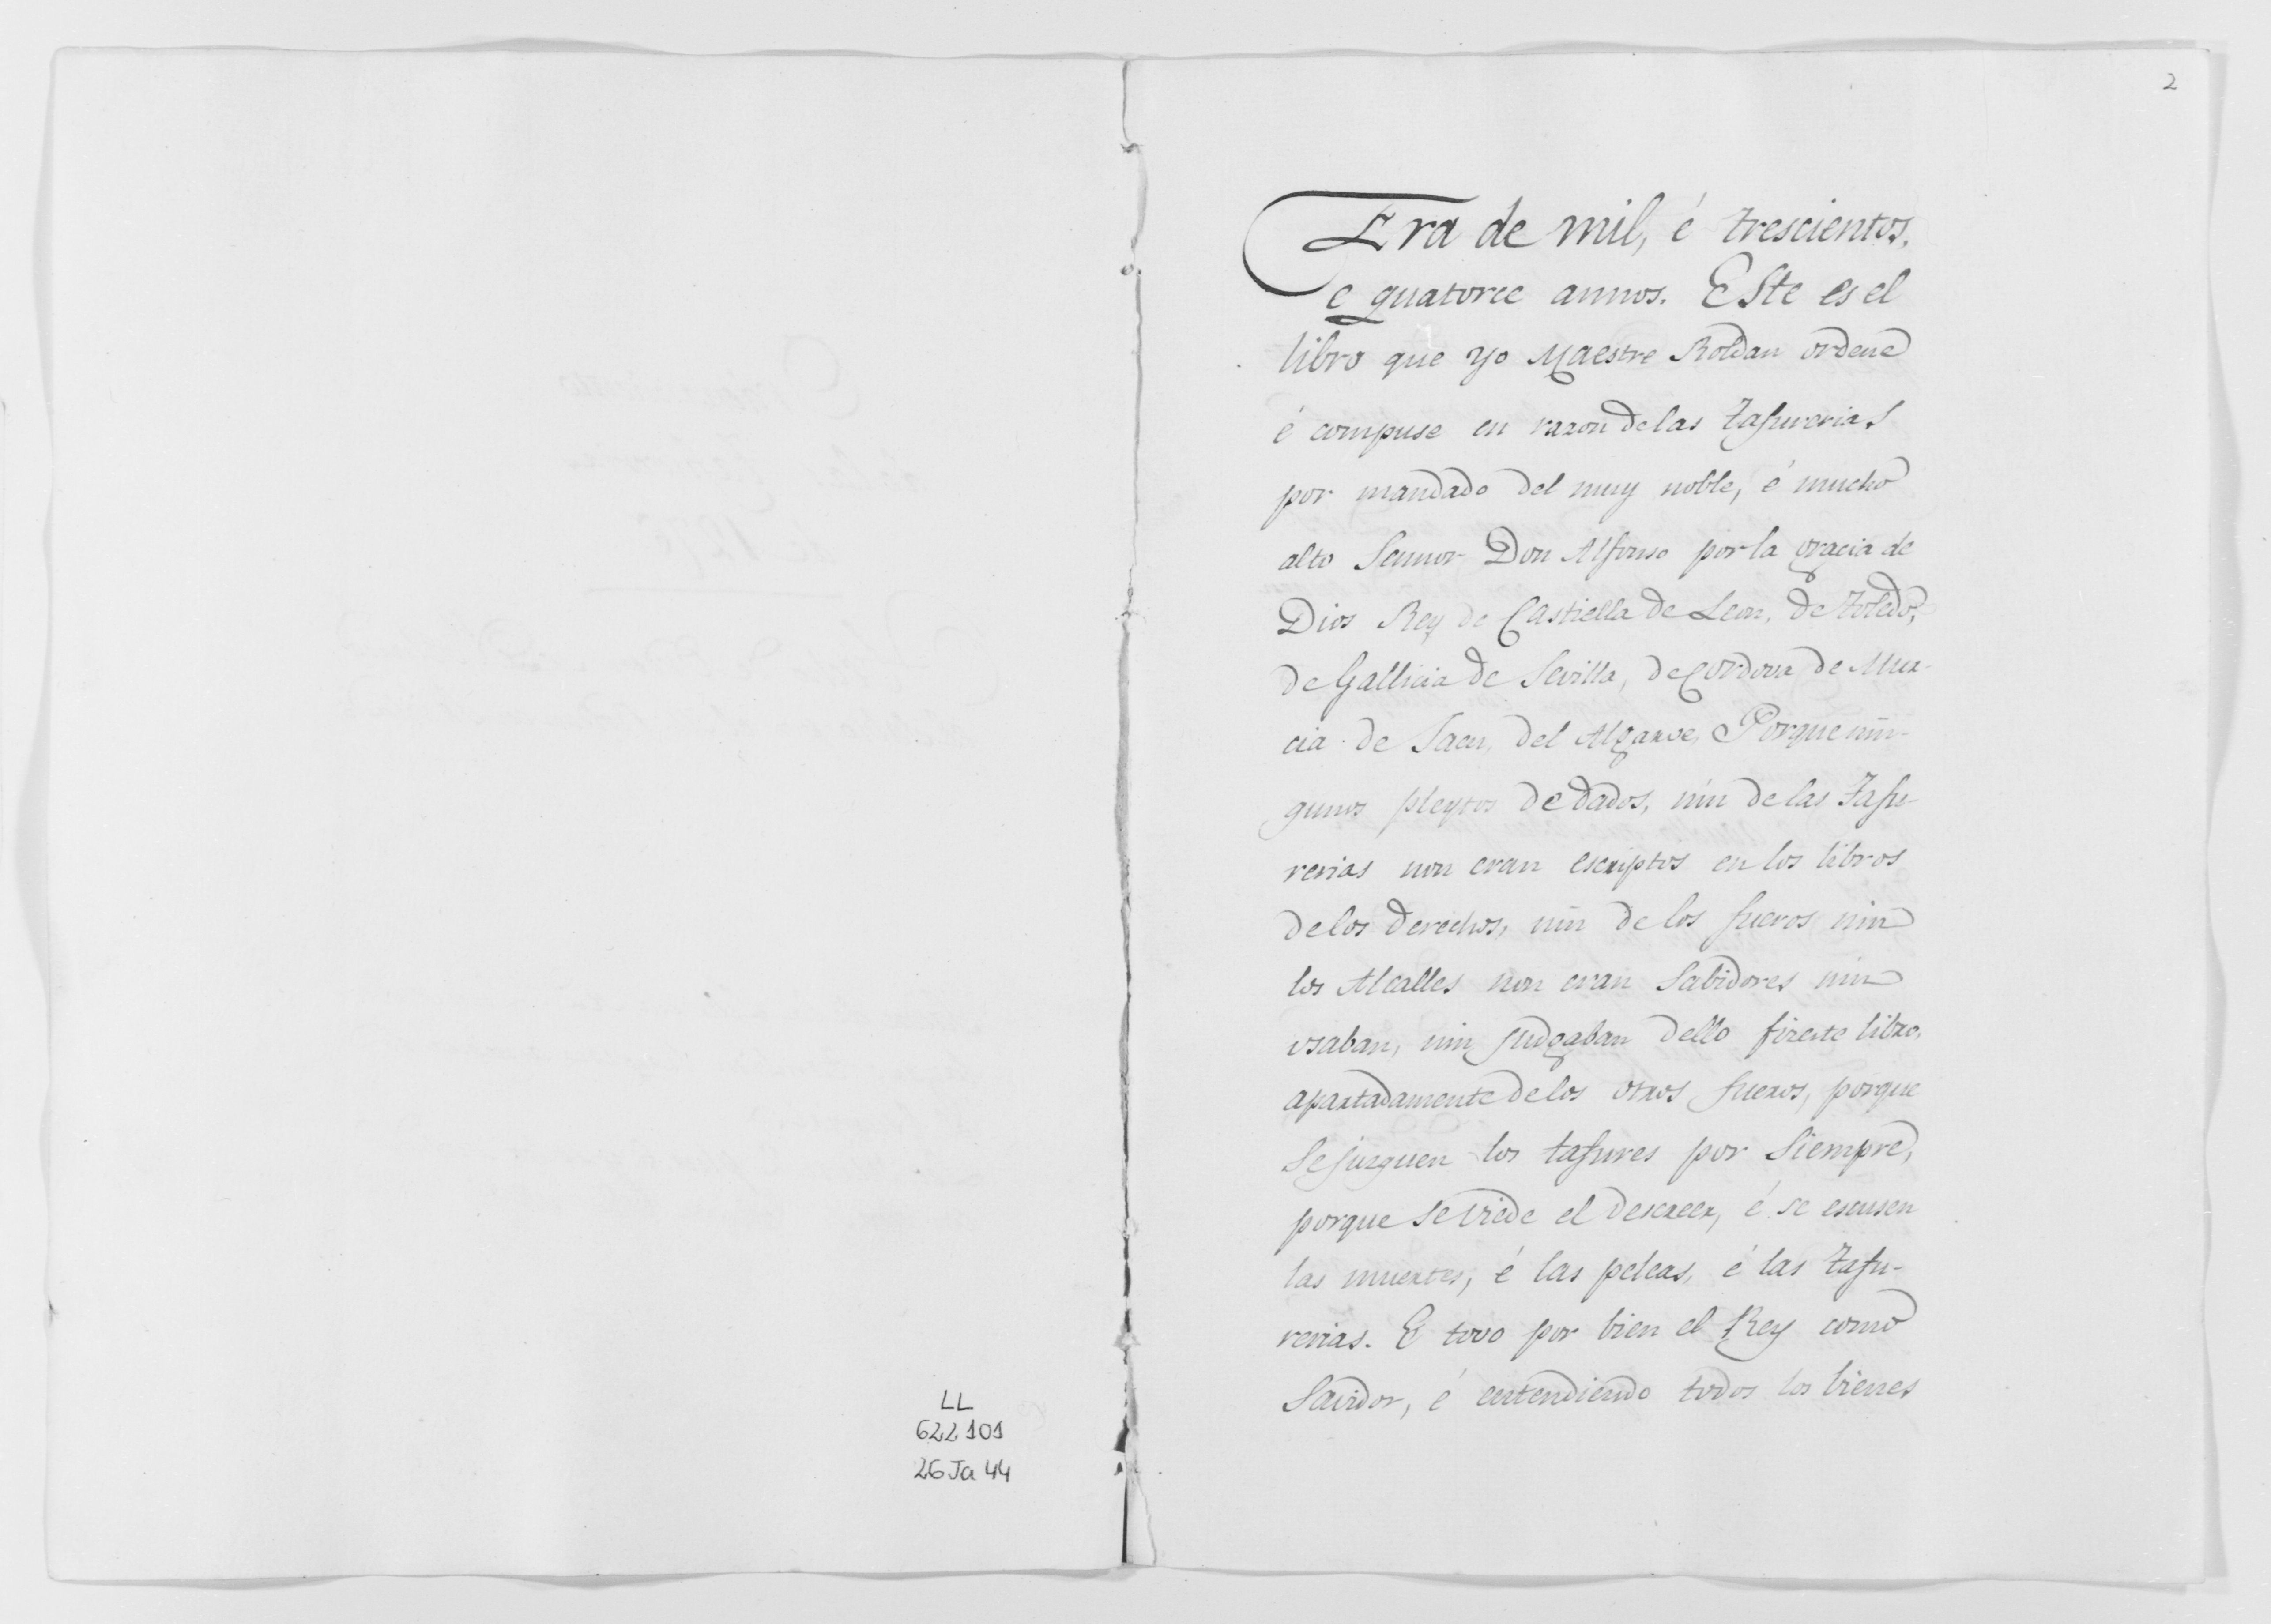 LL
622101
26 Ja 44
2
Era de mil, é trescientos,
e quatorce annos. Este es el
libro que yo Maestre Roldan ordene
é compuse en razon de las Tafurerias
por mandado del muy noble, é mucho
alto Sennor Don Alfonso por la gracia de
Dios Rey de Castiella de Leon, de Toledo,
de Gallicia de Sevilla, de Cordova de Mur-
cia de Jaen, del Algarve, Porque nin-
gunos pleytos de dados, nin de las Tafu-
rerias non eran escriptos en los libros
de los derechos, nin de los fueros nin
los Alcalles non eran Sabidores nin
usaban, nin judgaban dello fiz este libro,
apartadamente de los otros fueros, porque
se juzguen los tafures por Siempre,
porque se viede el descreer, é se escusen
las muertes, é las peleas, é las Tafu-
rerias. E tovo por bien el Rey como
Savidor, é entendiendo todos los bienes